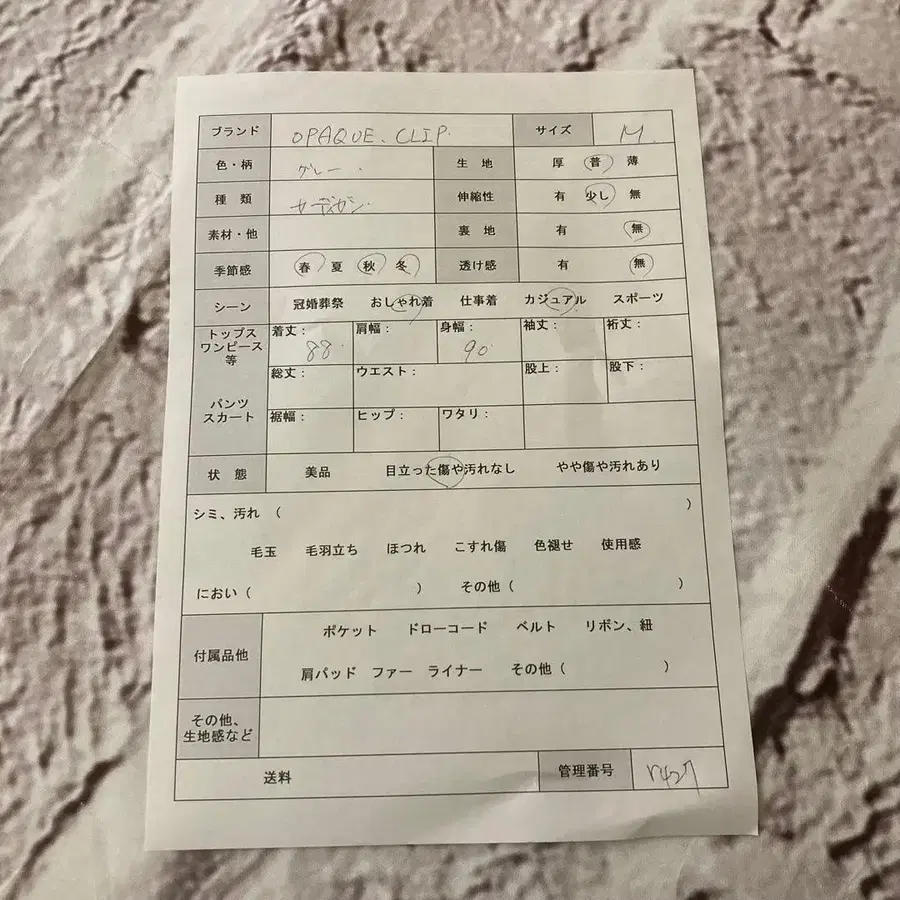 ブランド OPAQUE.CLIP. サイズ M
色・柄 グレー. 生 地 厚 普 薄
種 類 カーディガン. 伸縮性 有 少し 無
素材・他 裏 地 有 無
季節感 春 夏 秋 冬 透け感 有 無
シーン 冠婚葬祭 おしゃれ着 仕事着 カジュアル スポーツ
トップス ワンピース 等 着丈： 88. 肩幅： 身幅： 90. 袖丈： 裄丈：
パンツ スカート 総丈： ウエスト： 股上： 股下：
裾幅： ヒップ： ワタリ：
状 態 美品 目立った傷や汚れなし やや傷や汚れあり
シミ、汚れ （ ）
毛玉 毛羽立ち ほつれ こすれ傷 色褪せ 使用感
におい（ ） その他（ ）
付属品他 ポケット ドローコード ベルト リボン、紐
肩パッド ファー ライナー その他（ ）
その他、
生地感など
送料 管理番号